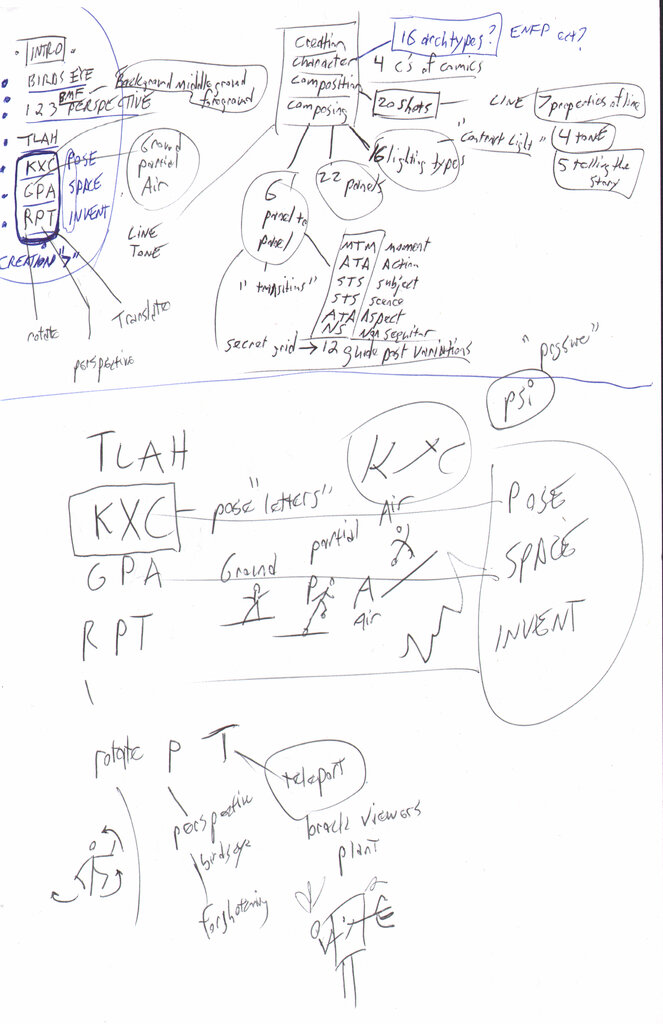 INTRO
BIRDS EYE
BMF
1 2 3 PERSPECTIVE
Background middleground
foreground
TLAH
KXC POSE
GPA SPACE
RPT INVENT
CREATION
Ground
partial
Air
LINE
TONE
rotate
perspective
Translate
Creation
character
composition
composing
16 archtypes?
ENFP
4 C's of comics
20 shots
LINE
7 properties of line
"Contrast Light"
4 TONE
5 telling the
story
16 lighting types
22 panels
6
panel to
panel
"transitions"
MTM moment
ATA Action
STS subject
STS scence
ATA Aspect
NS Non sequitur
secret grid → 12 guide post variations
psi
TLAH
KXC
KXC
pose "letters"
POSE
GPA
Ground
partial
Air
P
A
Air
SPACE
RPT
INVENT
rotate P T
teleport
perspective
birdseye
forshotening
break viewers
plant